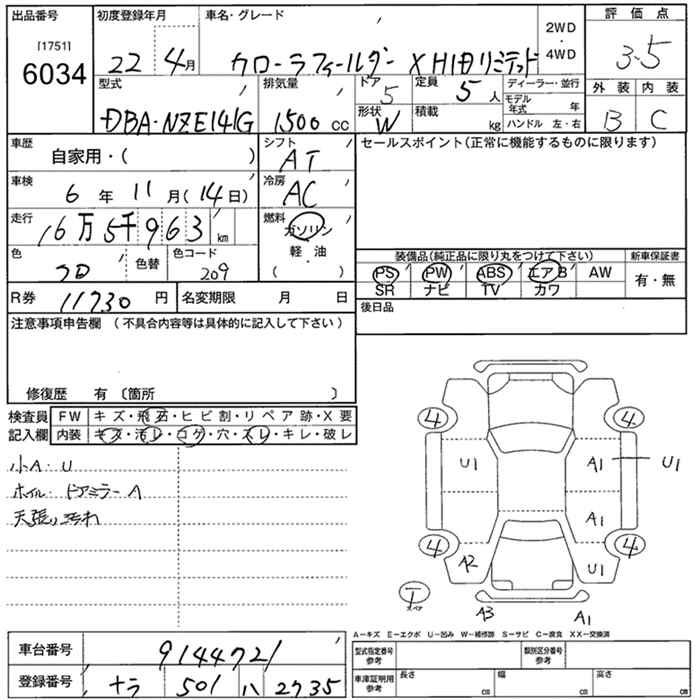 出品番号 初度登録年月 車名・グレード 評価点
[1751]
6034 22年4月 カローラフィールダー X HID リミテッド 2WD・4WD 3.5
型式 排気量 ドア 5 定員 5人 ディーラー・並行 外装 内装
DBA-NZE141G 1500cc 形状 W 積載 kg モデル年式 年 ハンドル 左・右 B C
車歴 自家用・( ) シフト AT セールスポイント(正常に機能するものに限ります)
車検 6年11月(14日) 冷房 AC
走行 16万5千963km 燃料 ガソリン 軽・油 ( )
色 クロ 色替 色コード 209
装備品(純正品に限り丸をつけて下さい) 新車保証書
PS PW ABS エアB AW 有・無
SR ナビ TV カワ
R券 11730円 名変期限 月 日 後日品
注意事項申告欄 (不具合内容等は具体的に記入して下さい)
修復歴 有 〔箇所 〕
検査員 FW キズ・飛石・ヒビ割・リペア跡・X要
記入欄 内装 キズ・汚レ・コゲ・穴・スレ・キレ・破レ
小A・U
ホイル・ドアミラーA
天張り汚れ
4 4
U1 A1 U1
A1
4 4
A2 U1
T スペア A3 A1
A-キズ E-エクボ U-凹み W-補修跡 S-サビ C-腐食 XX-交換済
車台番号 9144721 型式指定番号 参考 類別区分番号 参考
登録番号 ナラ 501 ハ 2735 車庫証明用 参考 長さ cm 幅 cm 高さ cm